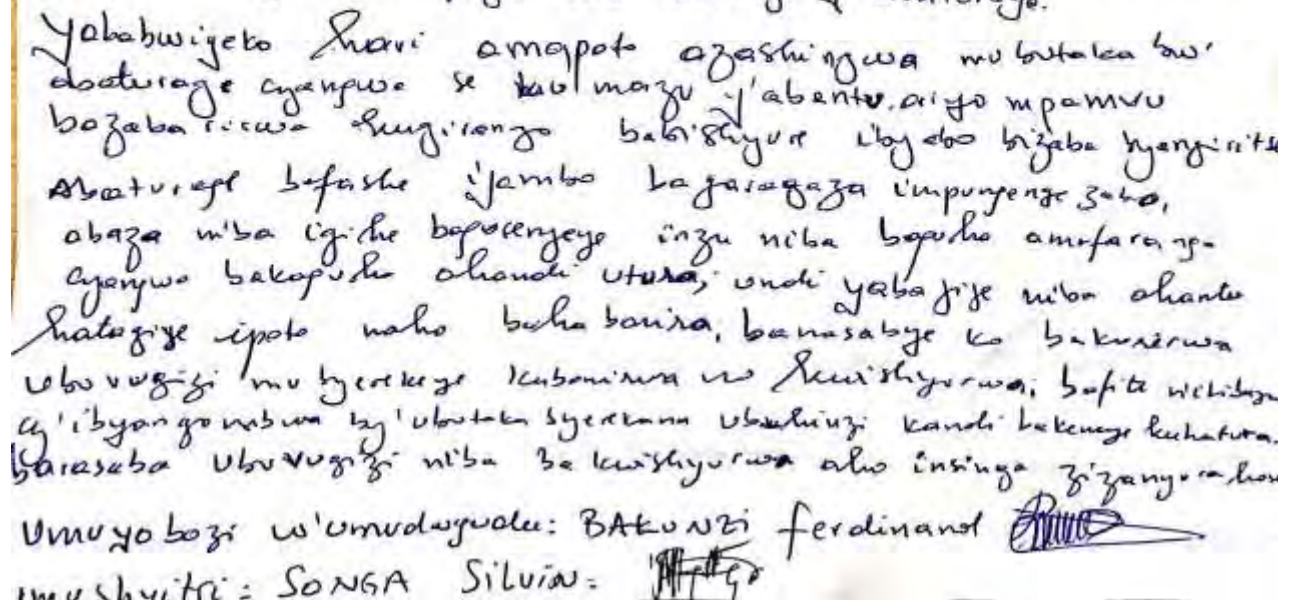 Yababwiyeko hari amapoto azashingwa mu butaka bw'
abaturage cyangwa se ku mazu y'abantu, ariyo mpamvu
bazabarirwa kugirango babishyure ibyabo bizaba byangiritse
Abaturage bafashe ijambo bagaragaza impungenge zabo,
abaza niba igihe bagucenyeye inzu niba baguha amafaranga
cyangwa bakaguha ahandi utura, undi yabajije niba ahantu
hatagiye ipoto naho bahabarira, banasabye ko bakorerwa
ubuvugizi mu byerekeye kubarirwa no kwishyurwa, bafite n'ikibazo
cy'ibyangombwa by'ubutaka byerekana ubuhinzi kandi bakeneye kuhatura.
barasaba ubuvugizi niba bakwishyurwa aho insinga zizanyura hose
Umuyobozi w'umudugudu: BAKUNZI ferdinand
umushyitsi: SONGA Silvin: